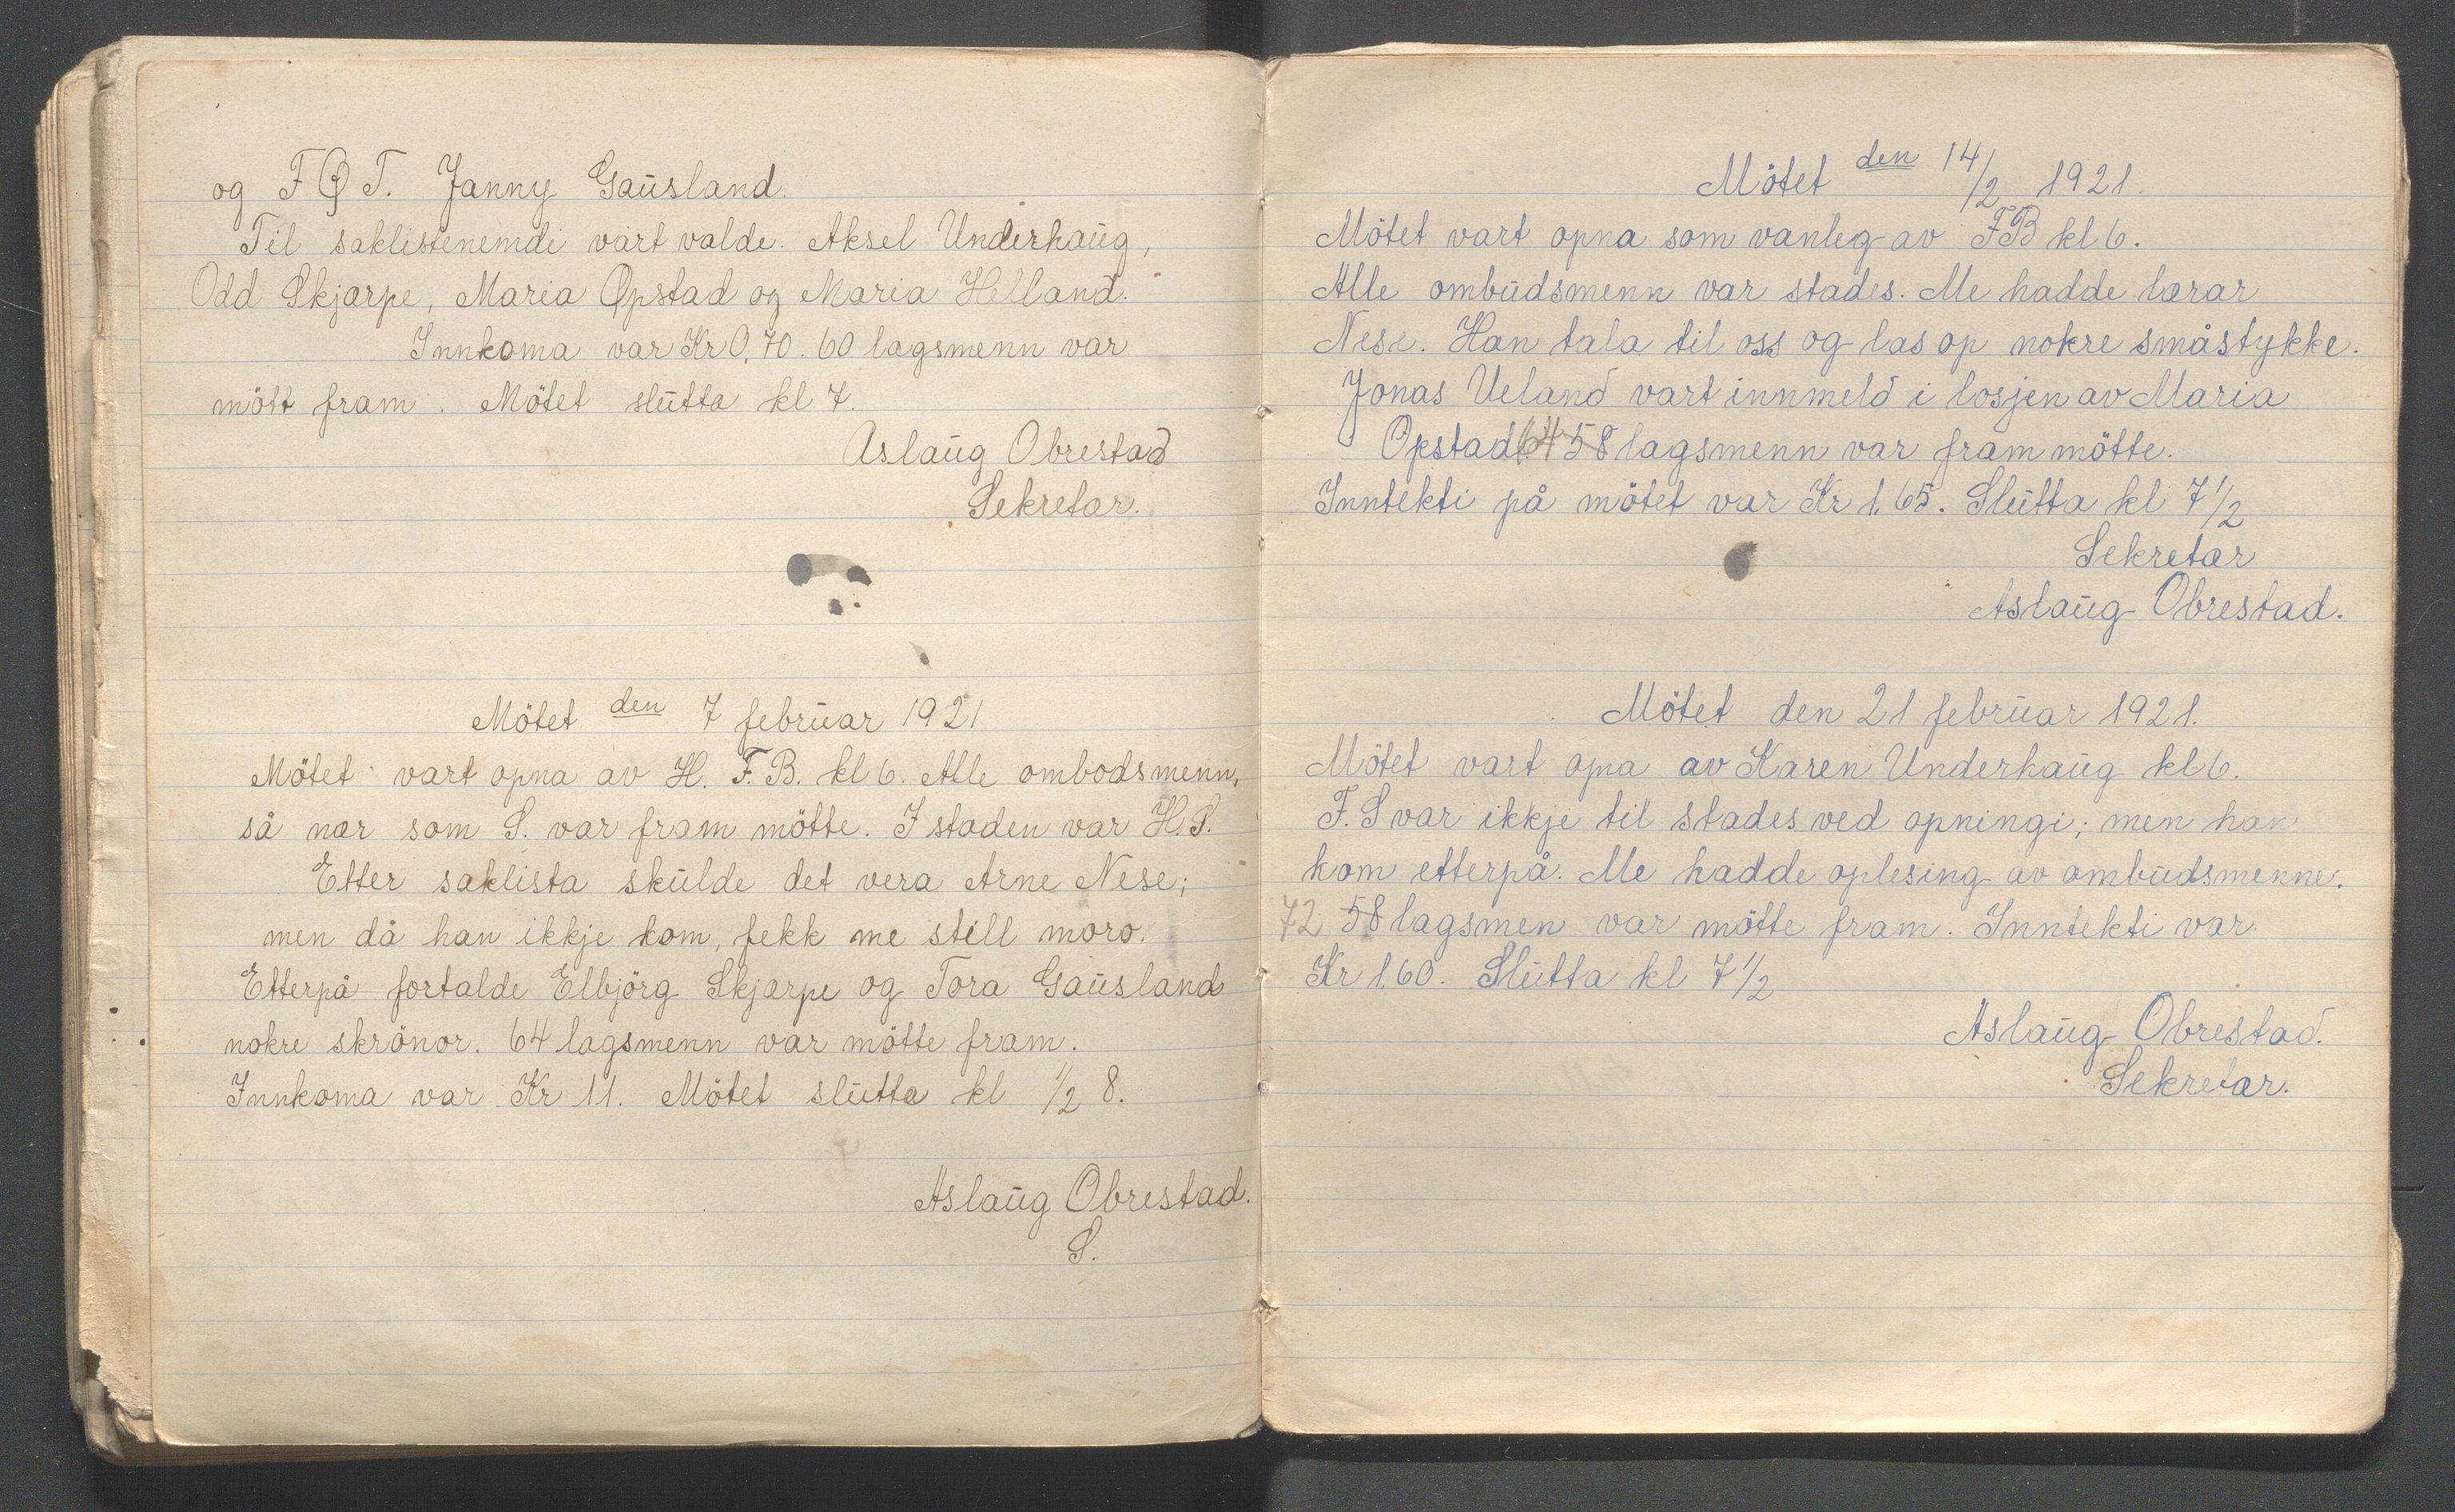 og F Ø T. Janny Gausland.
Til saklistenemdi vart valde. Aksel Underhaug,
Odd Skjarpe, Maria Opstad og Maria Helland.
Innkoma var Kr 0,70. 60 lagsmenn var
mött fram. Mötet slutta kl 7.
Aslaug Obrestad
Sekretar.
Mötet den 7 februar 1921
Mötet vart opna av H. F. B. kl 6. Alle ombodsmenn,
så nær som S. var fram mötte. I staden var H.S.
Etter saklista skulde det vera Arne Nese;
men då han ikkje kom, fekk me still moro.
Etterpå fortalde Elbjörg Skjarpe og Tora Gausland
nokre skrönor. 64 lagsmenn var mötte fram.
Innkoma var Kr 11. Mötet slutta kl 1/2 8.
Aslaug Obrestad.
S.
Mötet den 14/2 1921.
Mötet vart opna som vanleg av FB kl 6.
Alle ombudsmenn var stades. Me hadde lærar
Nese. Han tala til oss og las op nokre småstykke.
Jonas Ueland vart innmeld i losjen av Maria
Opstad. 64 58 lagsmenn var fram mötte.
Inntekti på mötet var Kr 1,65. Slutta kl 7 1/2
Sekretær
Aslaug Obrestad.
Mötet den 21 februar 1921.
Mötet vart opna av Karen Underhaug kl 6.
F. S var ikkje til stades ved opningi; men han
kom etterpå. Me hadde oplesing av ombudsmenne.
72 58 lagsmen var mötte fram. Inntekti var
Kr 1,60. Slutta kl 7 1/2
Aslaug Obrestad.
Sekretær.